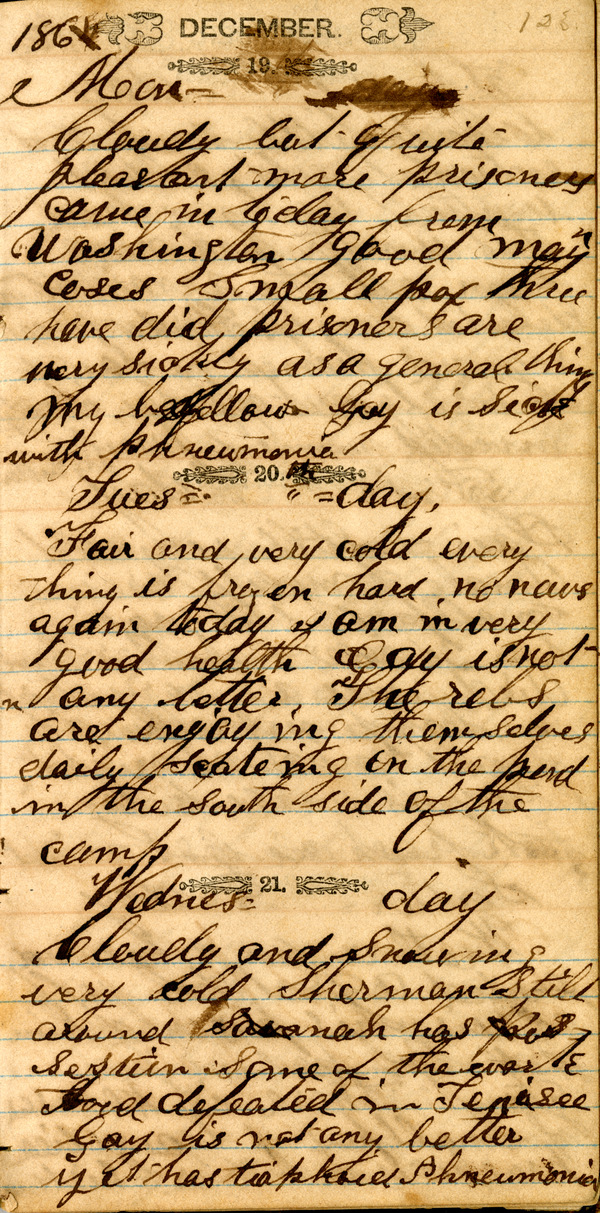 186
DECEMBER.
19.
Mon=
Cloudy but Quite
pleasant more prisoners
came in today from
Washington Good many
coses Small pox three
have did prisoners are
very sickly as a general thing
my bedfellow Gay is sick
with phneumonia
20.
Tues= " =day,
Fair and very cold every
thing is frozen hard no news
again today I am in very
good health Gay is not
any better, The rebs
are enjoying themselves
daily scateing on the pond
in the south side of the
camp
21.
Wednes= day
Cloudy and Snowing
very cold Sherman Still
around Savanah has pos-
sestion Some of the works
Hood defeated in Tenisee
Gay is not any better
yet has tiaphoid Phneumonia